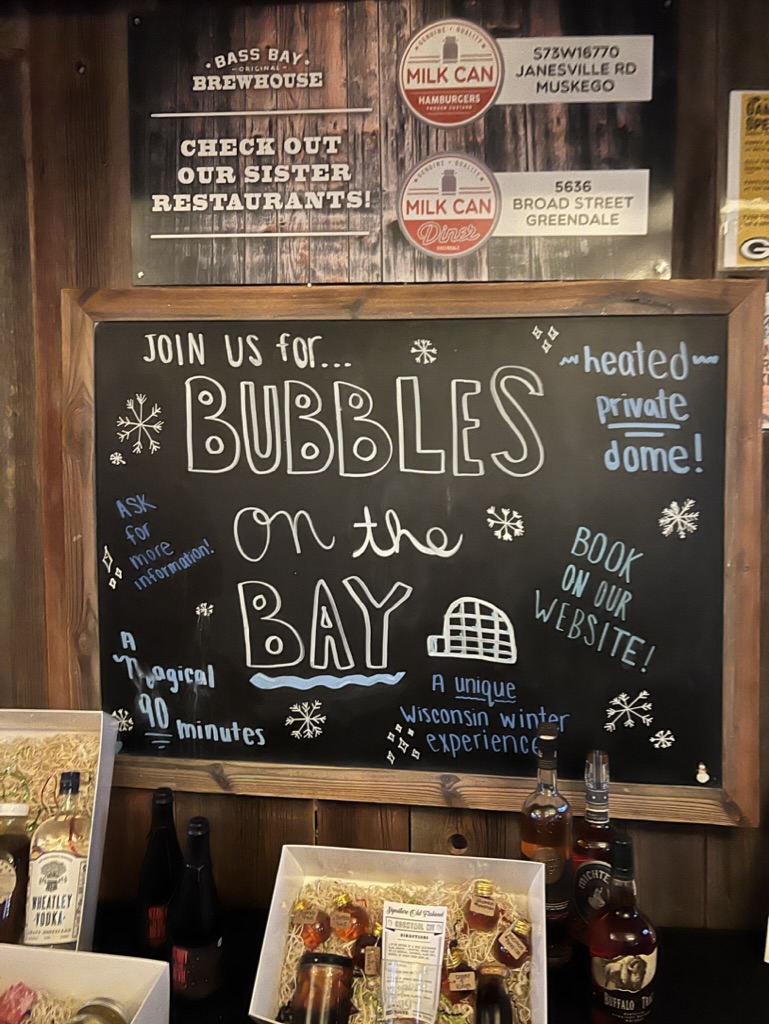 BASS BAY
ORIGINAL
BREWHOUSE
CHECK OUT
OUR SISTER
RESTAURANTS!
GENUINE • QUALITY
MILK CAN
HAMBURGERS
FROZEN CUSTARD
S73W16770
JANESVILLE RD
MUSKEGO
GENUINE • QUALITY
MILK CAN
Diner
GREENDALE
5636
BROAD STREET
GREENDALE
G
JOIN US for...
BUBBLES
on the
BAY
heated
private
dome!
ASK
for
more
information!
BOOK
ON OUR
WEBSITE!
A
Magical
90 minutes
A unique
Wisconsin winter
experience
WHEATLEY
VODKA
Signature Old Fashioned
COCKTAIL KIT
DIRECTIONS
MICHTER
BUFFALO TRA